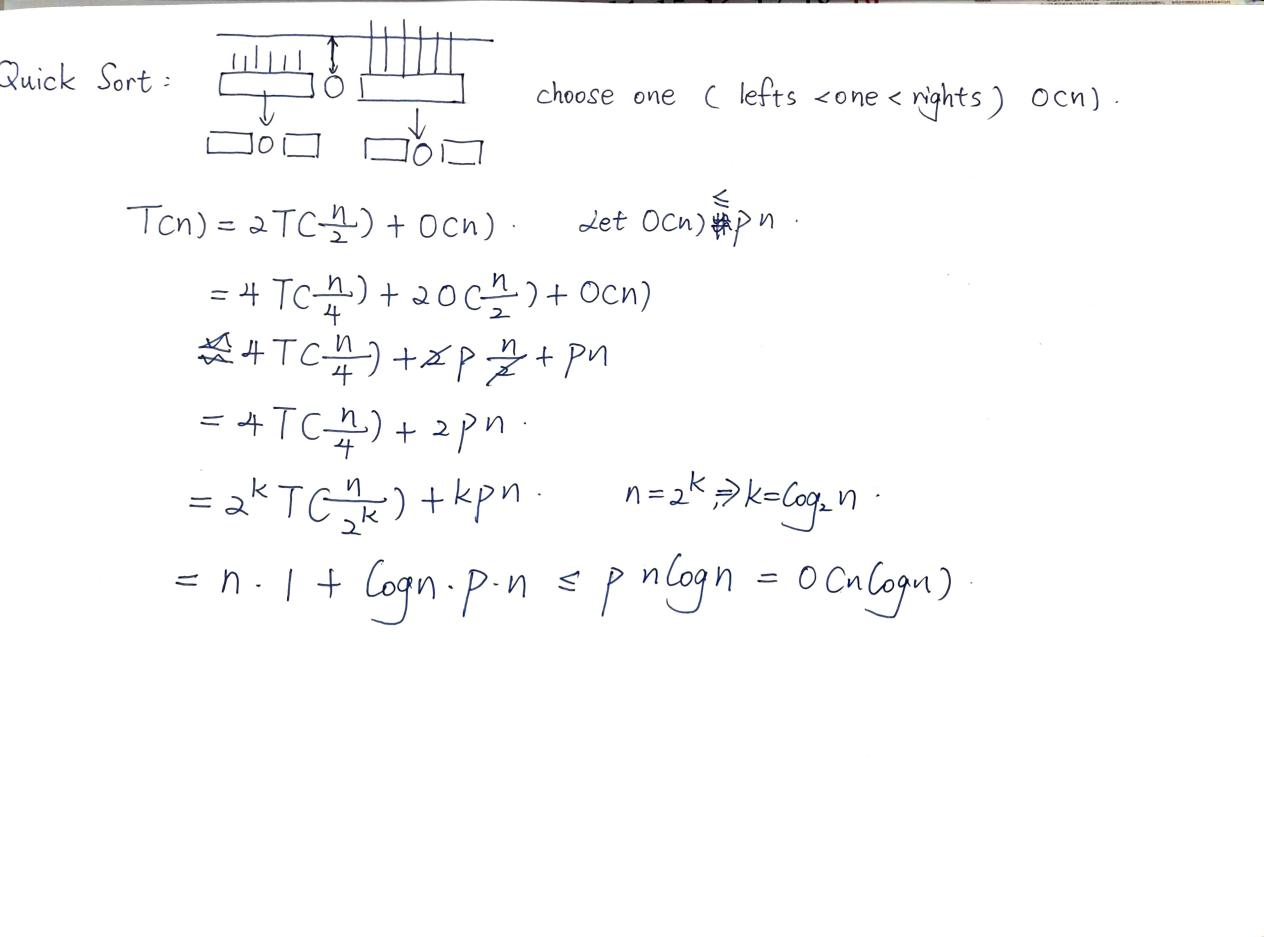 Quick Sort : choose one ( lefts < one < rights ) O(n) .
T(n) = 2T(n/2) + O(n) . Let O(n) ≤ pn .
= 4T(n/4) + 2O(n/2) + O(n)
4T(n/4) + 2p n/2 + pn
= 4T(n/4) + 2pn .
= 2^k T(n/2^k) + kpn . n = 2^k, ⇒ k = log₂ n .
= n · 1 + logn · p · n ≤ p nlogn = O(nlogn) .